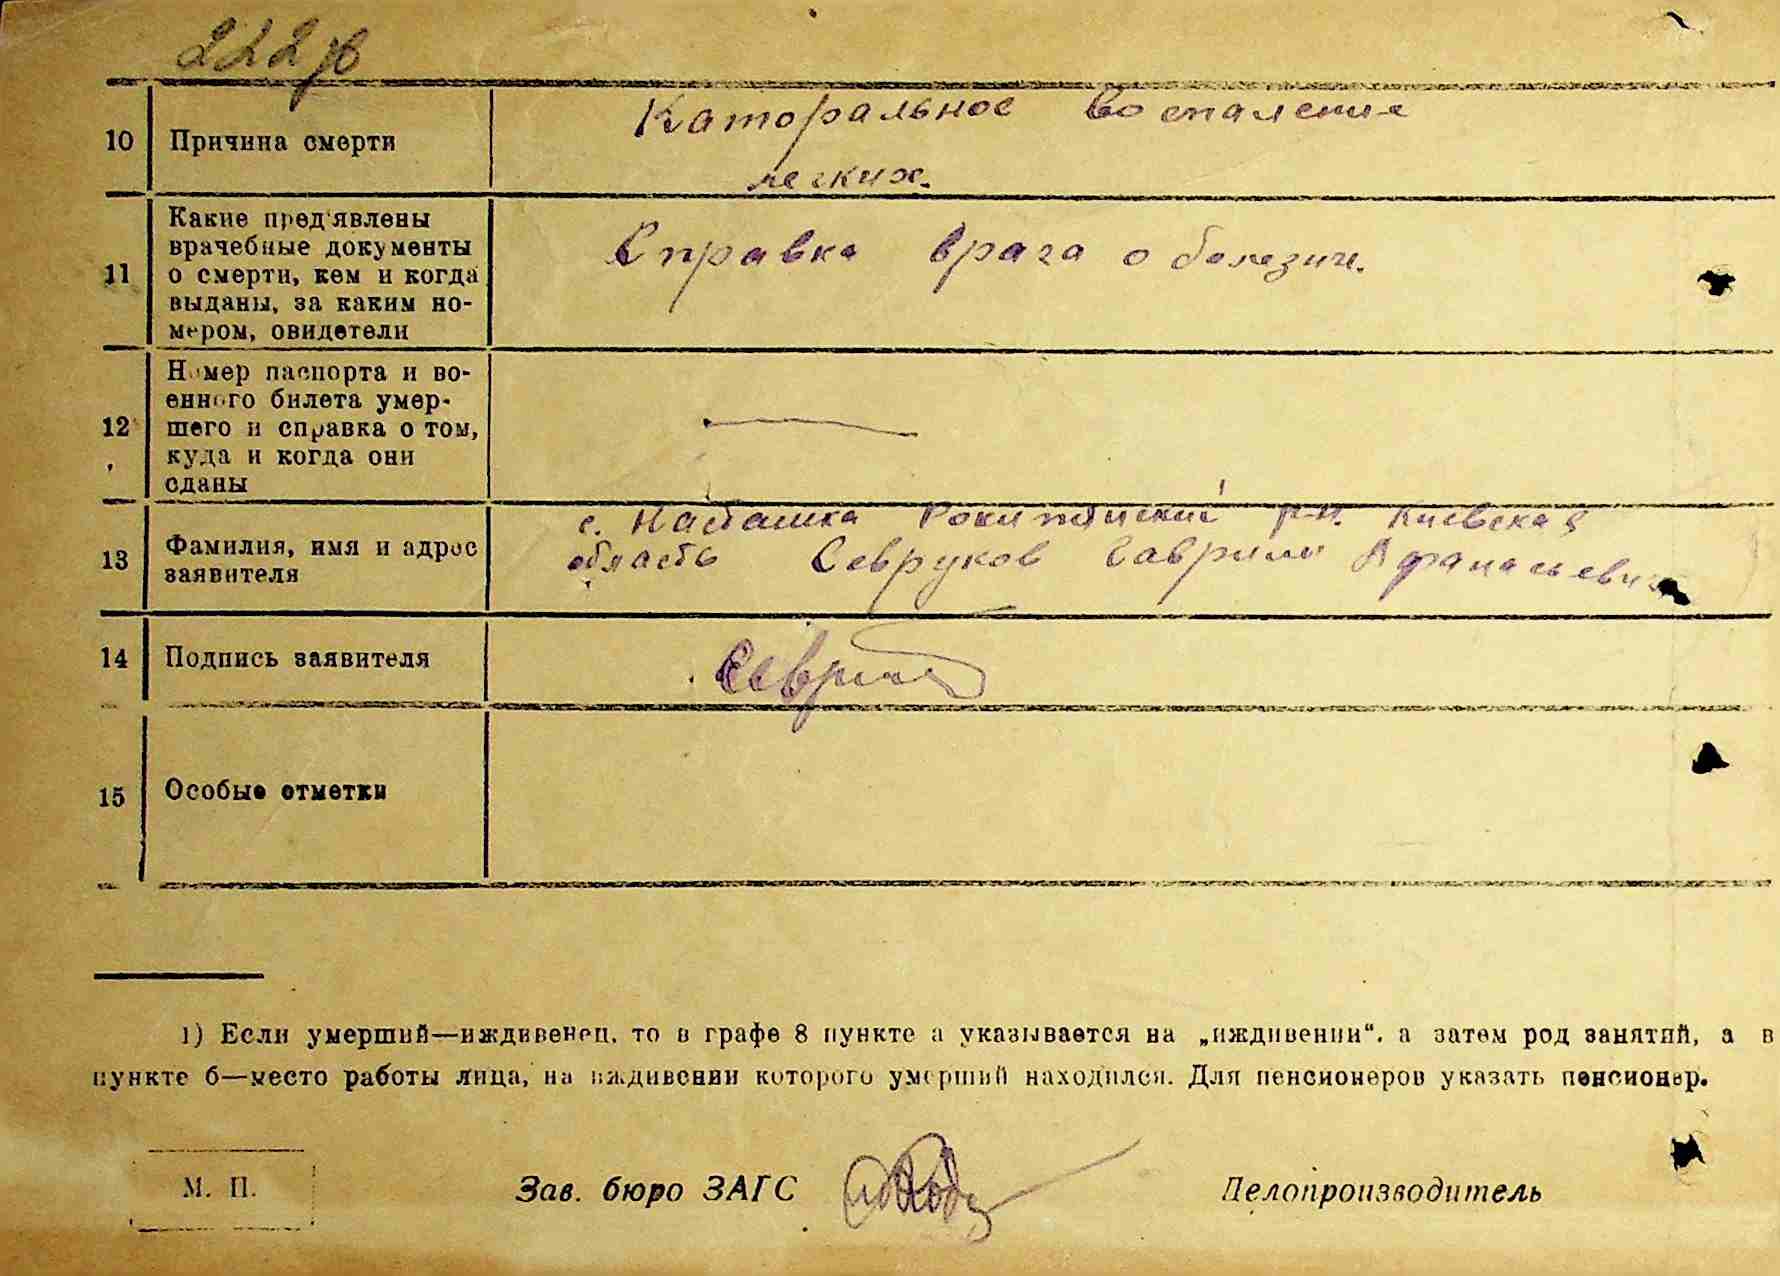 10 Причина смерти Каторальное воспаление
легких.
Какие пред'явлены
врачебные документы
11 о смерти, кем и когда Справка врача о болезни.
выданы, за каким но-
мером, овидетели
Номер паспорта и во-
енного билета умер-
12 шего и справка о том,
куда и когда они
сданы
с. Насташка Рокитянский р-н. Киевская
13 Фамилия, имя и адрес область Севруков Гаврило Афанасьевич
заявителя
14 Подпись заявителя
15 Особые отметки
1) Если умерший—иждивенец, то в графе 8 пункте а указывается на „иждивении“. а затем род занятий, а в
пункте б—место работы лица, на иждивении которого умерший находился. Для пенсионеров указать пенсионер.
М. П. Зав. бюро ЗАГС Делопроизводитель